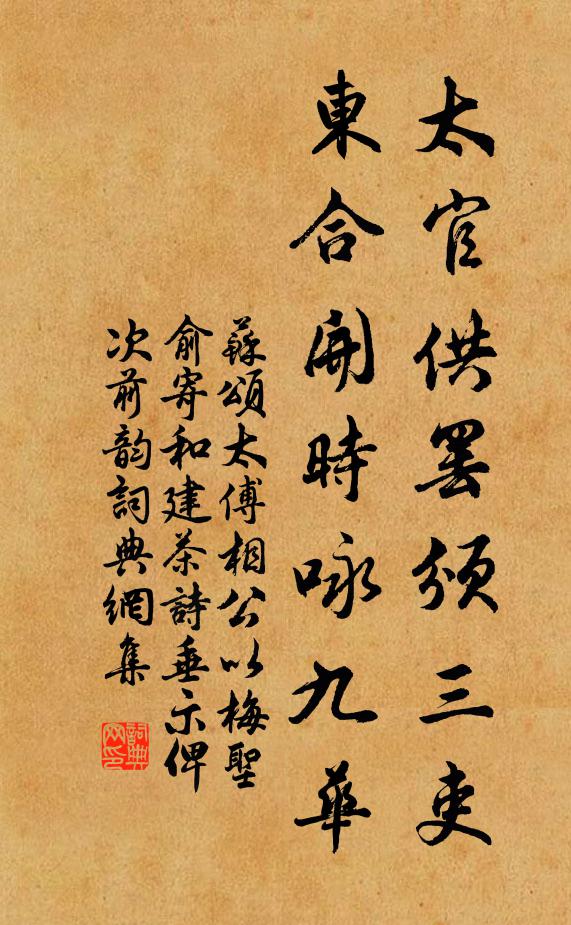 太官供罢頒三吏
東合開時咏九華
蘇頌太傅相公以梅聖
俞寄和建茶詩垂示俾
次前韵詞典網集
詞典网印